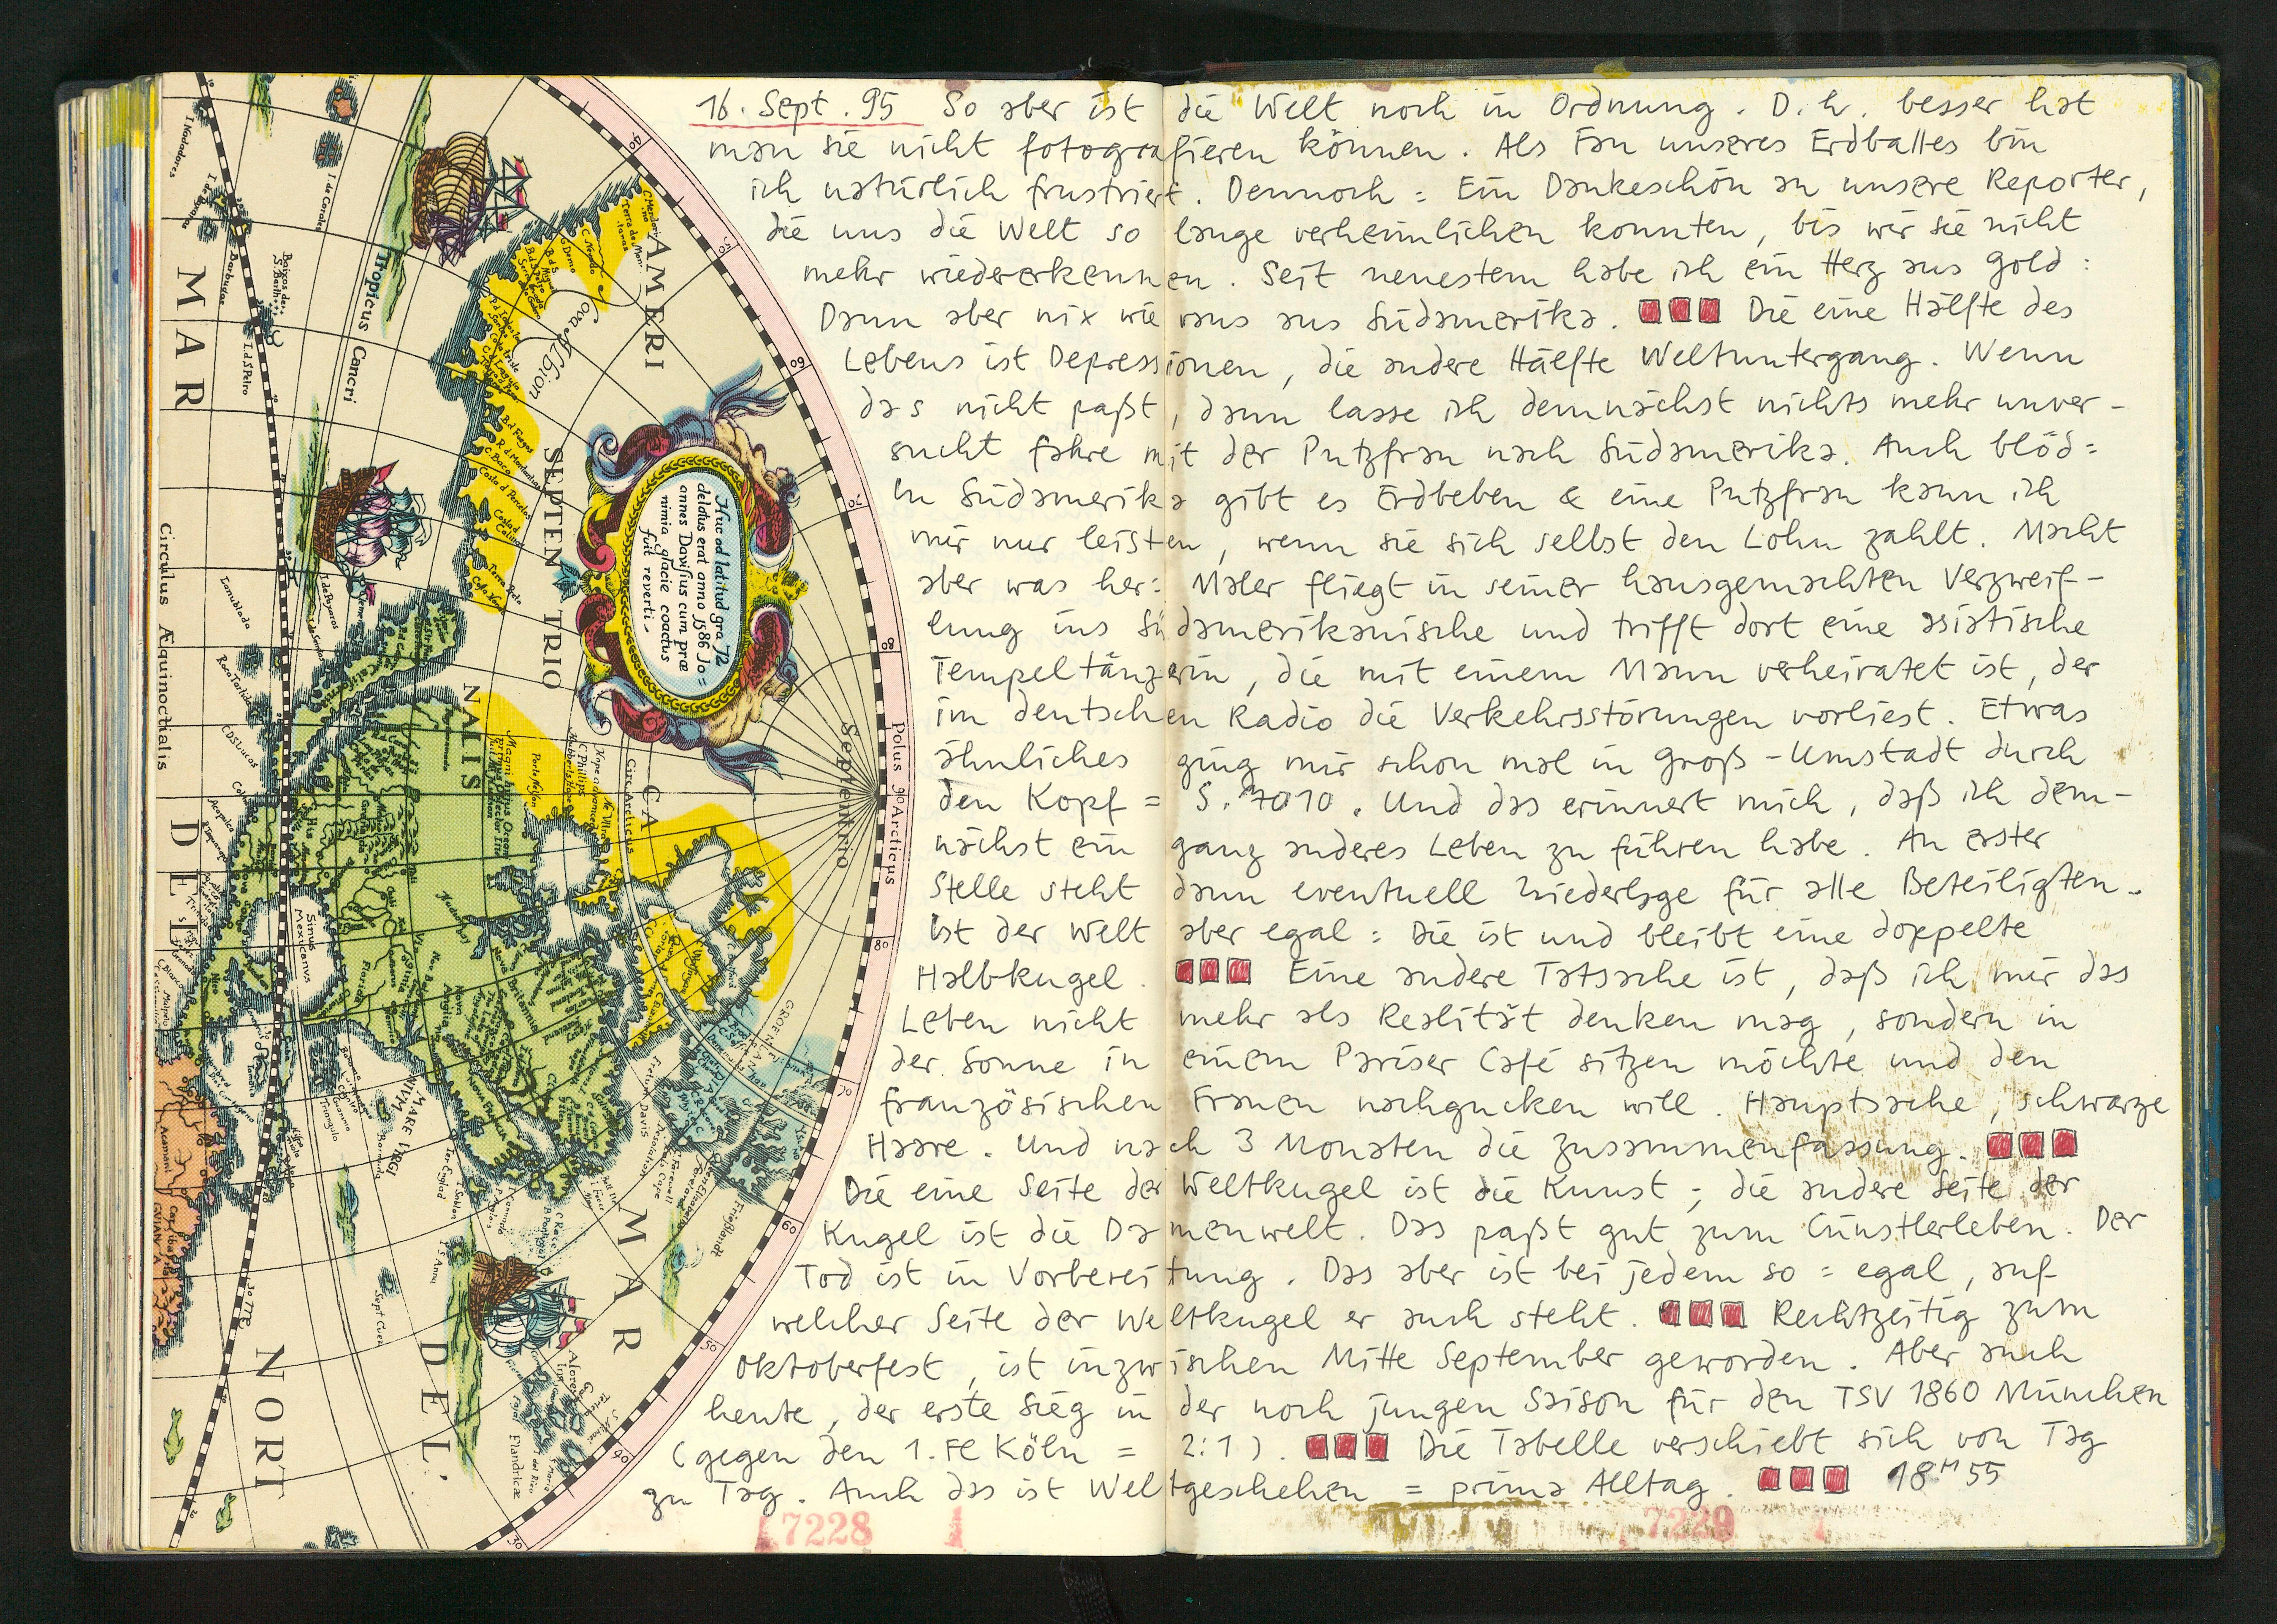 16. Sept. 95 So aber ist die Welt noch in Ordnung. D.h. besser hat
man sie nicht fotografieren können. Als Fan unseres Erdballes bin
ich natürlich frustriert. Dennoch: Ein Dankeschön an unsere Reporter,
die uns die Welt so lange verheimlichen konnten, bis wir sie nicht
mehr wiedererkennen. Seit neuestem habe ich ein Herz aus Gold:
Dann aber nix wie raus aus Südamerika. Die eine Hälfte des
Lebens ist Depressionen, die andere Hälfte Weltuntergang. Wenn
das nicht paßt, dann lasse ich demnächst nichts mehr unver-
sucht fahre mit der Putzfrau nach Südamerika. Auch blöd:
In Südamerika gibt es Erdbeben & eine Putzfrau kann ich
mir nur leisten, wenn sie sich selbst den Lohn zahlt. Macht
aber was her: Maler fliegt in seiner hausgemachten Verzweif-
lung ins Südamerikanische und trifft dort eine asiatische
Tempeltänzerin, die mit einem Mann verheiratet ist, der
im deutschen Radio die Verkehrsstörungen vorliest. Etwas
ähnliches ging mir schon mal in Groß-Umstadt durch
den Kopf = S. 7010. Und das erinnert mich, daß ich dem-
nächst ein ganz anderes Leben zu führen habe. An erster
Stelle steht dann eventuell Niederlage für alle Beteiligten.
Ist der Welt aber egal: Die ist und bleibt eine doppelte
Halbkugel. Eine andere Tatsache ist, daß ich mir das
Leben nicht mehr als Realität denken mag, sondern in
der Sonne in einem Pariser Café sitzen möchte und den
französischen Frauen nachgucken will. Hauptsache, schwarze
Haare. Und nach 3 Monaten die Zusammenfassung.
Die eine Seite der Weltkugel ist die Kunst; die andere Seite der
Kugel ist die Damenwelt. Das paßt gut zum Cünstlerleben. Der
Tod ist in Vorbereitung. Das aber ist bei jedem so = egal, auf
welcher Seite der Weltkugel er auch steht. Rechtzeitig zum
Oktoberfest, ist inzwischen Mitte September geworden. Aber auch
heute, der erste Sieg in der noch jungen Saison für den TSV 1860 München
(gegen den 1. FC Köln = 2:1). Die Tabelle verschiebt sich von Tag
zu Tag. Auch das ist Weltgeschehen = prima Alltag. 18H55
7228
7229
AMERI
CA
SEPTEN TRIO
NALIS
Nova Albion
MAR DEL NORT
MAR DEL
Tropicus Cancri
Circulus Æquinoctialis
Circulus Arcticus
Polus Arcticus
Septentrio
Huc ad latitud gra 72
delatus erat anno 1586 Jo=
annes Davisius cum præ
nimia glacie coactus
fuit reverti-
Sinus
Mexicanus
MARE VIRGI
NIVM
California
Florida
Virginia
Nova Britannia
Nova Anglia
GROENLAND
Frießlandt
GUIANA
40
50
60
70
80
90
80
70
60
50
40
30